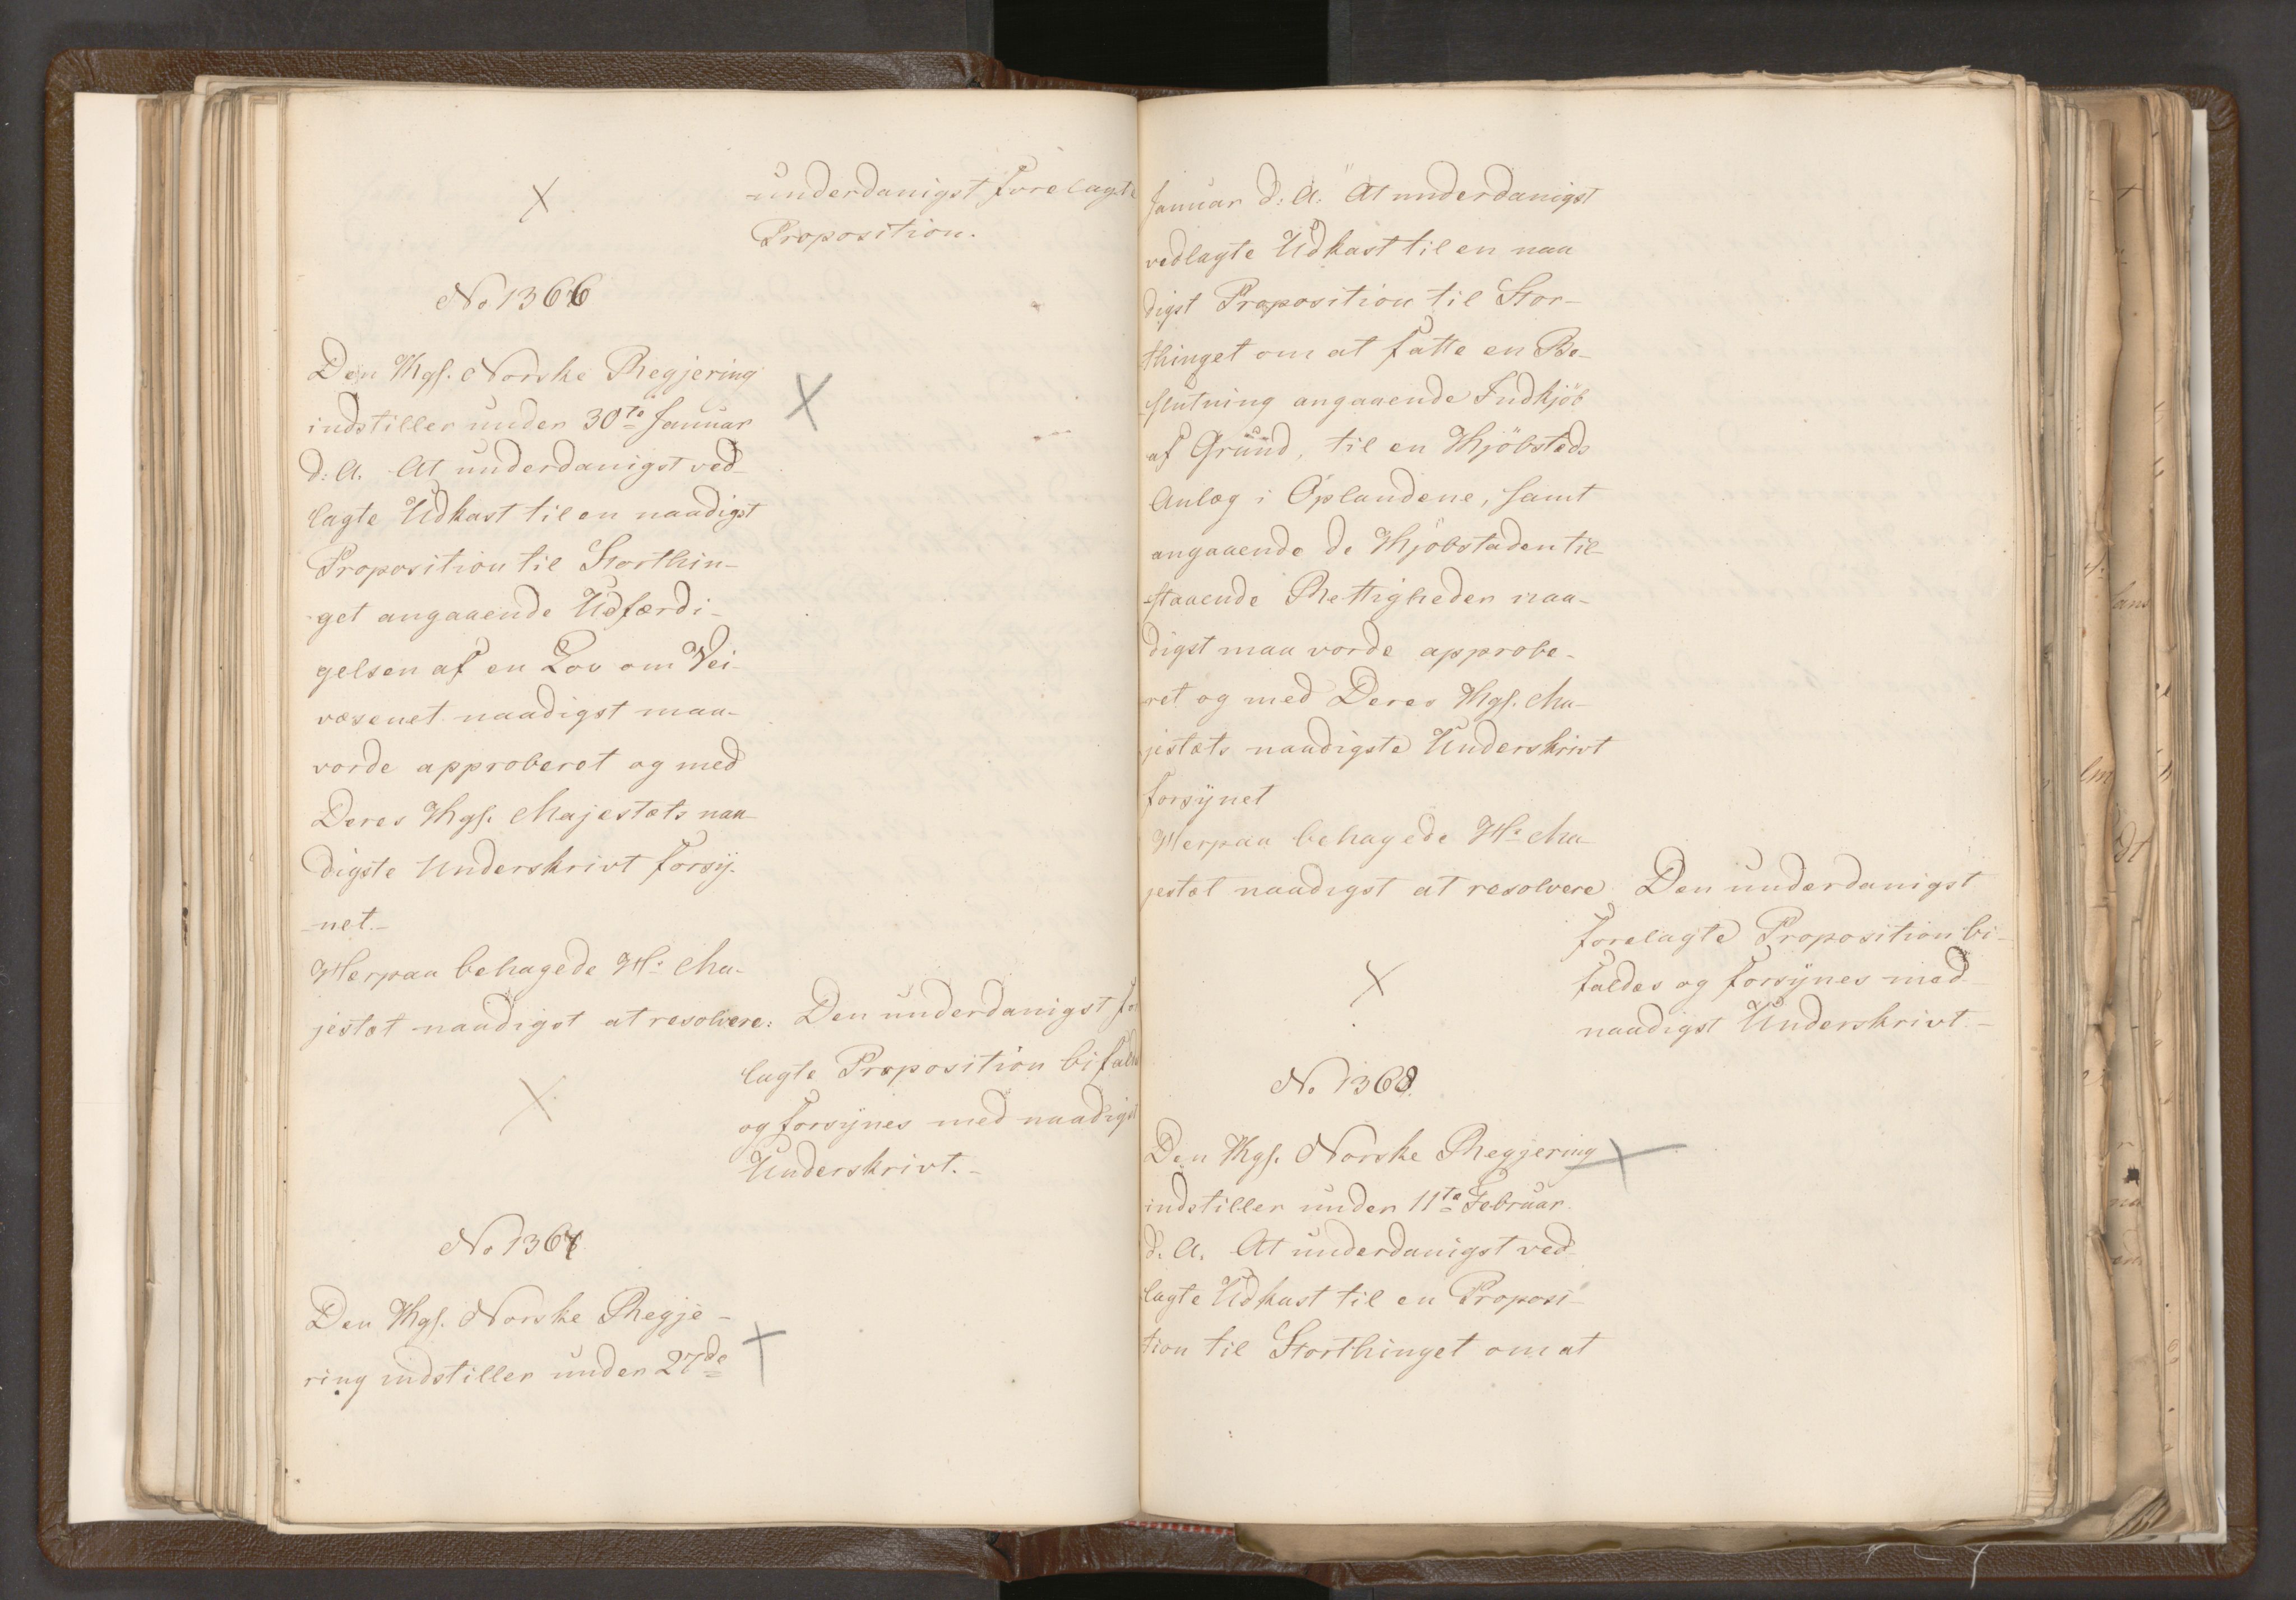 underdanigst forelagte
Proposition.
No 1366
Den Kgl. Norske Regjering
indstiller under 30te Januar
d: A. At underdanigst ved-
lagte Udkast til en naadigst
Proposition til Storthin-
get angaaende Udfærdi-
gelsen af en Lov om Vei-
væsenet naadigst maa
vorde approberet og med
Deres Kgl. Majestæts naa-
digste Underskrivt forsÿ-
net.-
Herpaa behagede Hs Ma-
jestæt naadigst at resolvere: Den underdanigst fo
lagte Proposition bifald
og forsÿnes med naadigst
Underskrivt.-
No 1367
Den Kgl. Norske Regje-
ring indstiller under 27de
Januar d: A. At underdanigst
vedlagte Udkast til en naa
digst Proposition til Stor-
thinget om at fatte en Be-
slutning angaaende Indkjöb
af Grund, til en Kjöbsteds
Anlæg i Oplandene, samt
angaaende de Kjöbstaden til-
staaende Rettigheder naa-
digst maa vorde approbe-
ret og med Deres Kgl. Ma-
jestæts naadigste Underskrivt
forsÿnet
Herpaa behagede Hs Ma-
jestæt naadigst at resolvere Den underdanigst
forelagte Proposition bi-
faldes og forsÿnes med
naadigst Underskrivt.-
No 1368.
Den Kgl. Norske Regjering
indstiller under 11te Februar
d. A. At underdanigst ved-
lagte Udkast til en Proposi-
tion til Storthinget om at